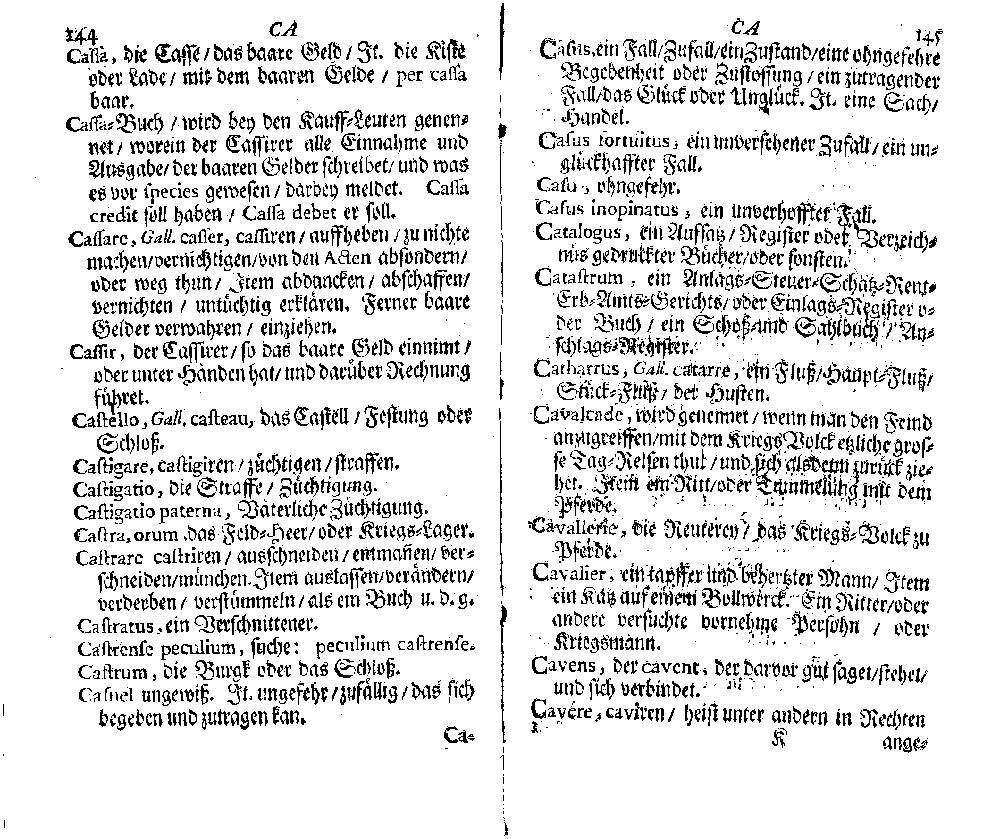 144 CA
Cassa, die Casse / das baare Geld / It. die Kiste
oder Lade / mit dem baaren Gelde / per cassa
baar.
Cassa-Buch / wird bey den Kauff-Leuten genen-
net / worein der Cassirer alle Einnahme und
Ausgabe / der baaren Gelder schreibet / und was
es vor species gewesen / darbey meldet. Cassa
credit soll haben / Cassa debet er soll.
Cassare, Gall. casser, cassiren / auffheben / zu nichte
machen / vernichtigen / von den Acten absondern /
oder weg thun / Item abdancken / abschaffen /
vernichten / untüchtig erklären. Ferner baare
Gelder verwahren / einziehen.
Cassir, der Cassirer / so das baare Geld einnimt /
oder unter Händen hat / und darüber Rechnung
führet.
Castello, Gall. casteau, das Castell / Festung oder
Schloß.
Castigare, castigiren / züchtigen / straffen.
Castigatio, die Straffe / Züchtigung.
Castigatio paterna, Väterliche Züchtigung.
Castra, orum, das Feld-Heer / oder Kriegs-Lager.
Castrare castriren / ausschneiden / entmañen / ver-
schneiden / münchen. Item auslassen / verändern /
verderben / verstümmeln / als ein Buch u. d. g.
Castratus, ein Verschnittener.
Castrense peculium, suche: peculium castrense.
Castrum, die Burgk oder das Schloß.
Casuel ungewiß. It. ungefehr / zufällig / das sich
begeben und zutragen kan.
Ca-
CA 145
Casus, ein Fall / Zufall / ein Zustand / eine ohngefehre
Begebenheit oder Zustossung / ein zutragender
Fall / das Glück oder Unglück. It. eine Sach /
Handel.
Casus fortuitus, ein unversehener Zufall / ein un-
glückhaffter Fall.
Casu, ohngefehr.
Casus inopinatus, ein unverhoffter Fall.
Catalogus, ein Auffsatz / Register oder Verzeich-
nüs gedruckter Bücher / oder sonsten.
Catastrum, ein Anlags-Steuer-Schatz-Rent-
Erb-Amts-Gerichts / oder Einlags-Register o-
der Buch / ein Schoß-und Sahlbuch / An-
schlags-Register.
Catharrus, Gall. catarre, ein Fluß / Haupt-Fluß /
Stück-Fluß / der Husten.
Cavalcade, wird genennet / wenn man den Feind
anzugreiffen / mit dem Kriegs Volck etzliche gros-
se Tag-Reisen thut / und sich alsdenn zurück zie-
het. Item ein Ritt / oder Tummelung mit dem
Pferde.
Cavallerie, die Reuterey / das Kriegs-Volck zu
Pferde.
Cavalier, ein tapffer und behertzter Mann / Item
ein Katz auf einem Bollwerck. Ein Ritter / oder
andere versuchte vornehme Persohn / oder
Kriegsmann.
Cavens, der cavent, der darvor gut saget / stehet /
und sich verbindet.
Cavére, caviren / heist unter andern in Rechten
K ange-